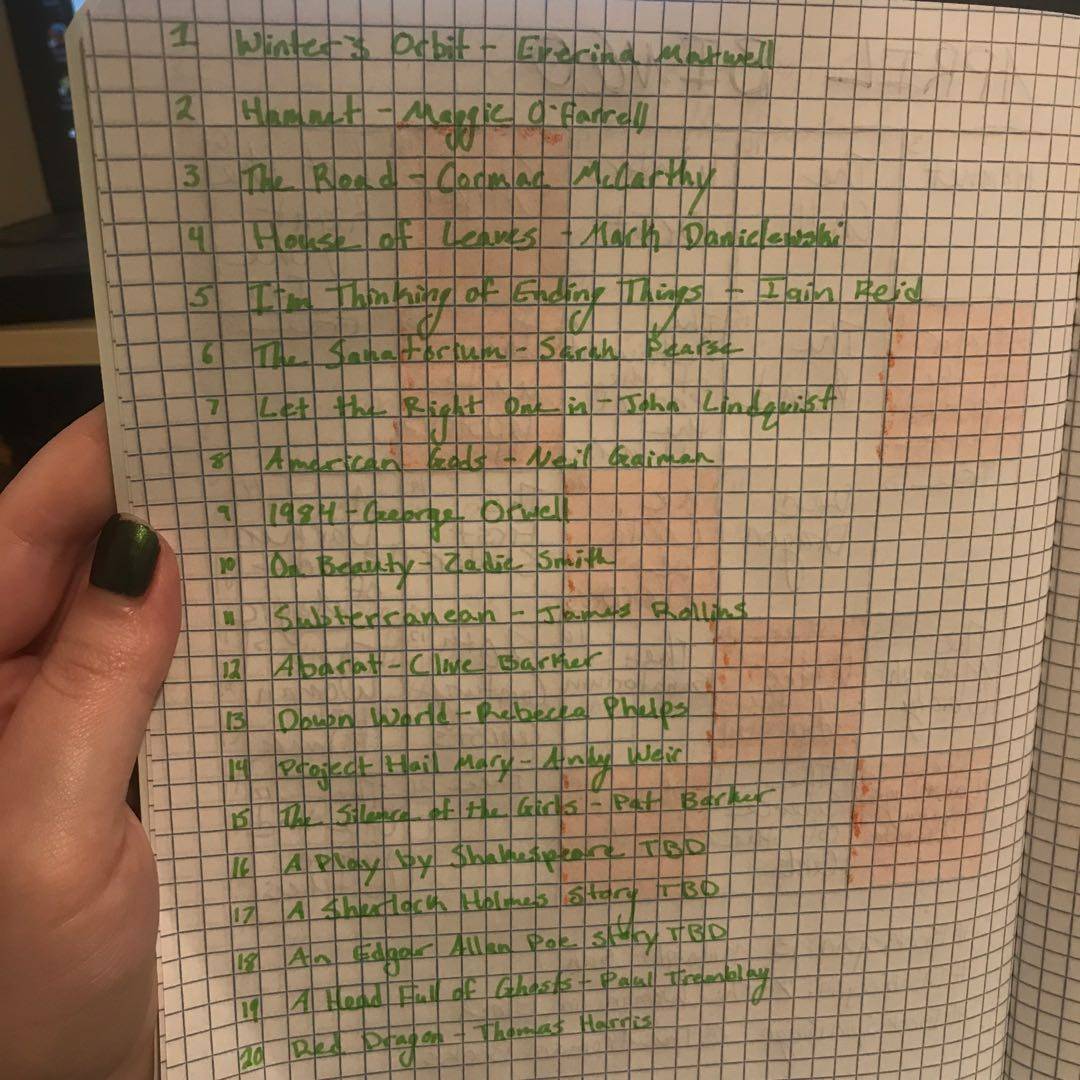 1 Winter's Orbit - Everina Maxwell
2 Hamnet - Maggie O'Farrell
3 The Road - Cormac McCarthy
4 House of Leaves - Mark Danielewski
5 I'm Thinking of Ending Things - Iain Reid
6 The Sanatorium - Sarah Pearse
7 Let the Right One in - John Lindquist
8 American Gods - Neil Gaiman
9 1984 - George Orwell
10 On Beauty - Zadie Smith
11 Subterranean - James Rollins
12 Abarat - Clive Barker
13 Down World - Rebecca Phelps
14 Project Hail Mary - Andy Weir
15 The Silence of the Girls - Pat Barker
16 A Play by Shakespeare TBD
17 A Sherlock Holmes Story TBD
18 An Edgar Allan Poe Story TBD
19 A Head Full of Ghosts - Paul Tremblay
20 Red Dragon - Thomas Harris